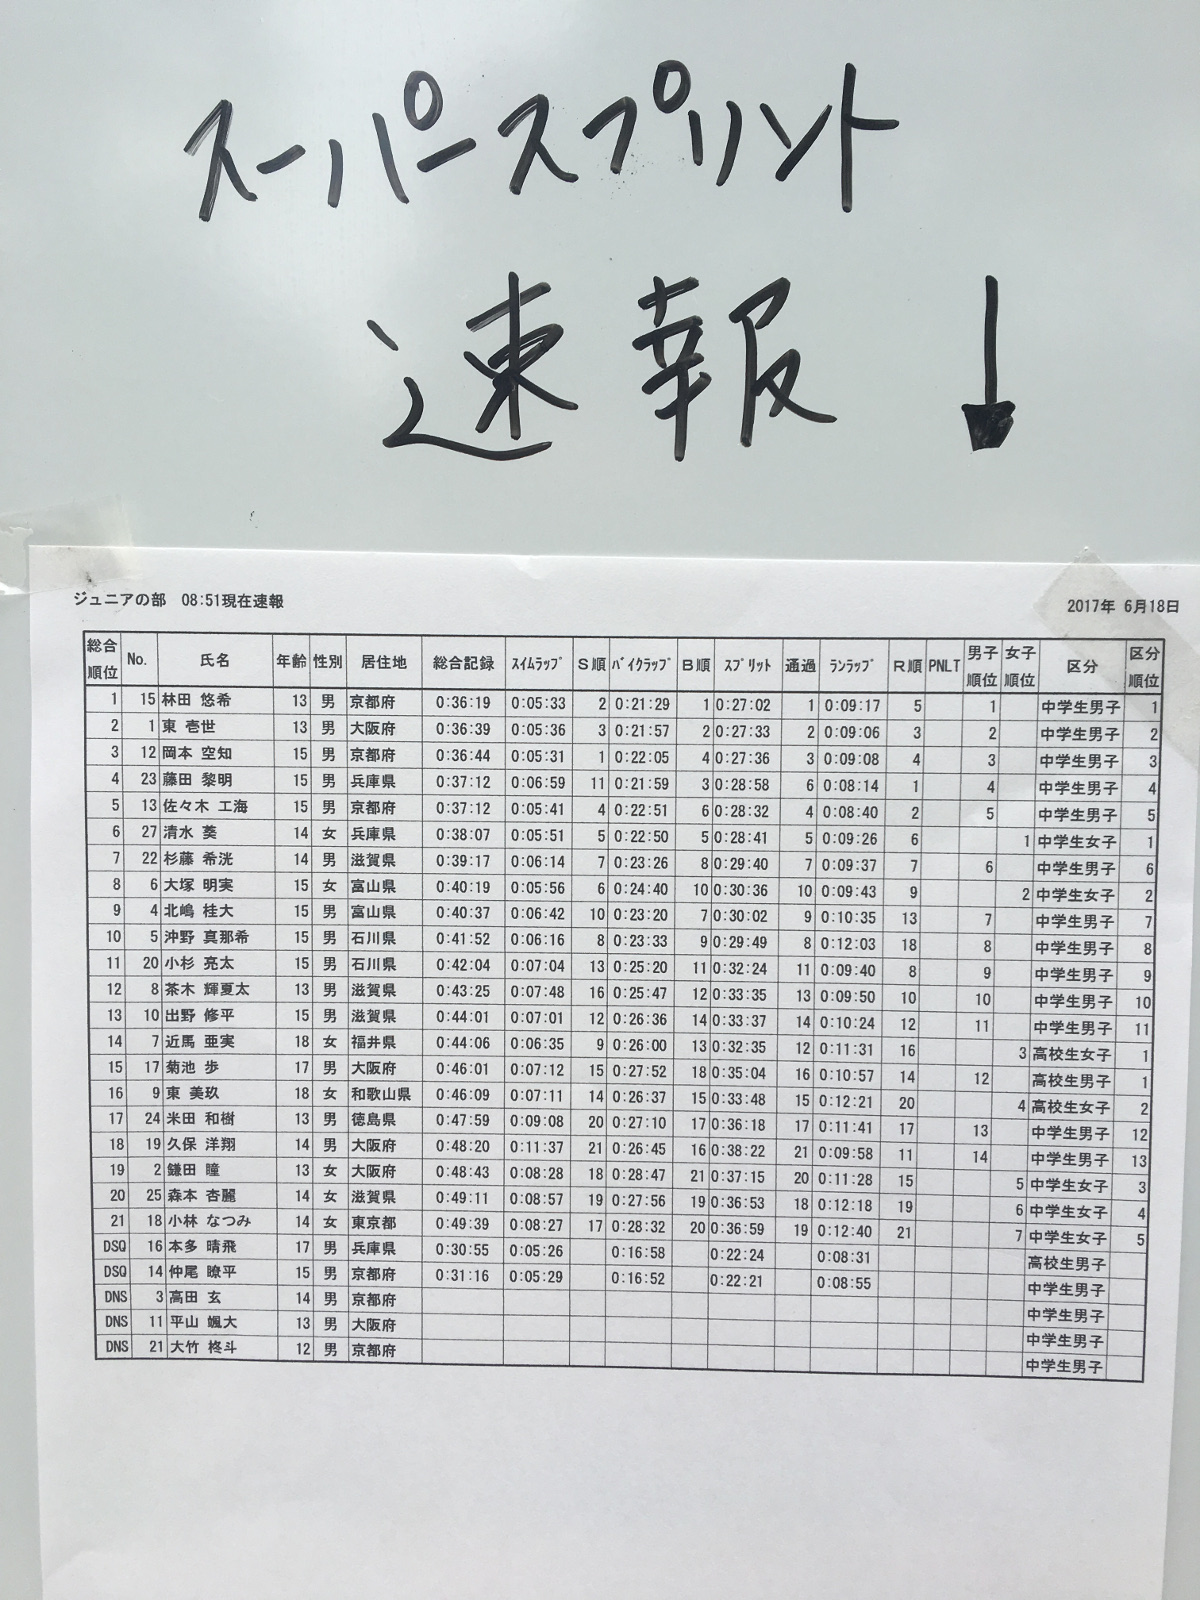 スーパースプリント
速報↓
ジュニアの部 08:51現在速報 2017年 6月18日
総合順位 No. 氏名 年齢 性別 居住地 総合記録 ｽｲﾑﾗｯﾌﾟ S順 ﾊﾞｲｸﾗｯﾌﾟ B順 ｽﾌﾟﾘｯﾄ 通過 ﾗﾝﾗｯﾌﾟ R順 PNLT 男子順位 女子順位 区分 区分順位
1 15 林田 悠希 13 男 京都府 0:36:19 0:05:33 2 0:21:29 1 0:27:02 1 0:09:17 5 1 中学生男子 1
2 1 東 壱世 13 男 大阪府 0:36:39 0:05:36 3 0:21:57 2 0:27:33 2 0:09:06 3 2 中学生男子 2
3 12 岡本 空知 15 男 京都府 0:36:44 0:05:31 1 0:22:05 4 0:27:36 3 0:09:08 4 3 中学生男子 3
4 23 藤田 黎明 15 男 兵庫県 0:37:12 0:06:59 11 0:21:59 3 0:28:58 6 0:08:14 1 4 中学生男子 4
5 13 佐々木 工海 15 男 京都府 0:37:12 0:05:41 4 0:22:51 6 0:28:32 4 0:08:40 2 5 中学生男子 5
6 27 清水 葵 14 女 兵庫県 0:38:07 0:05:51 5 0:22:50 5 0:28:41 5 0:09:26 6 1 中学生女子 1
7 22 杉藤 希洸 14 男 滋賀県 0:39:17 0:06:14 7 0:23:26 8 0:29:40 7 0:09:37 7 6 中学生男子 6
8 6 大塚 明実 15 女 富山県 0:40:19 0:05:56 6 0:24:40 10 0:30:36 10 0:09:43 9 2 中学生女子 2
9 4 北嶋 桂大 15 男 富山県 0:40:37 0:06:42 10 0:23:20 7 0:30:02 9 0:10:35 13 7 中学生男子 7
10 5 沖野 真那希 15 男 石川県 0:41:52 0:06:16 8 0:23:33 9 0:29:49 8 0:12:03 18 8 中学生男子 8
11 20 小杉 亮太 15 男 石川県 0:42:04 0:07:04 13 0:25:20 11 0:32:24 11 0:09:40 8 9 中学生男子 9
12 8 茶木 輝夏太 13 男 滋賀県 0:43:25 0:07:48 16 0:25:47 12 0:33:35 13 0:09:50 10 10 中学生男子 10
13 10 出野 修平 15 男 滋賀県 0:44:01 0:07:01 12 0:26:36 14 0:33:37 14 0:10:24 12 11 中学生男子 11
14 7 近馬 亜実 18 女 福井県 0:44:06 0:06:35 9 0:26:00 13 0:32:35 12 0:11:31 16 3 高校生女子 1
15 17 菊池 歩 17 男 大阪府 0:46:01 0:07:12 15 0:27:52 18 0:35:04 16 0:10:57 14 12 高校生男子 1
16 9 東 美玖 18 女 和歌山県 0:46:09 0:07:11 14 0:26:37 15 0:33:48 15 0:12:21 20 4 高校生女子 2
17 24 米田 和樹 13 男 徳島県 0:47:59 0:09:08 20 0:27:10 17 0:36:18 17 0:11:41 17 13 中学生男子 12
18 19 久保 洋翔 14 男 大阪府 0:48:20 0:11:37 21 0:26:45 16 0:38:22 21 0:09:58 11 14 中学生男子 13
19 2 鎌田 瞳 13 女 大阪府 0:48:43 0:08:28 18 0:28:47 21 0:37:15 20 0:11:28 15 5 中学生女子 3
20 25 森本 杏麗 14 女 滋賀県 0:49:11 0:08:57 19 0:27:56 19 0:36:53 18 0:12:18 19 6 中学生女子 4
21 18 小林 なつみ 14 女 東京都 0:49:39 0:08:27 17 0:28:32 20 0:36:59 19 0:12:40 21 7 中学生女子 5
DSQ 16 本多 晴飛 17 男 兵庫県 0:30:55 0:05:26 0:16:58 0:22:24 0:08:31 高校生男子
DSQ 14 仲尾 瞭平 15 男 京都府 0:31:16 0:05:29 0:16:52 0:22:21 0:08:55 中学生男子
DNS 3 高田 玄 14 男 京都府 中学生男子
DNS 11 平山 颯大 13 男 大阪府 中学生男子
DNS 21 大竹 柊斗 12 男 京都府 中学生男子